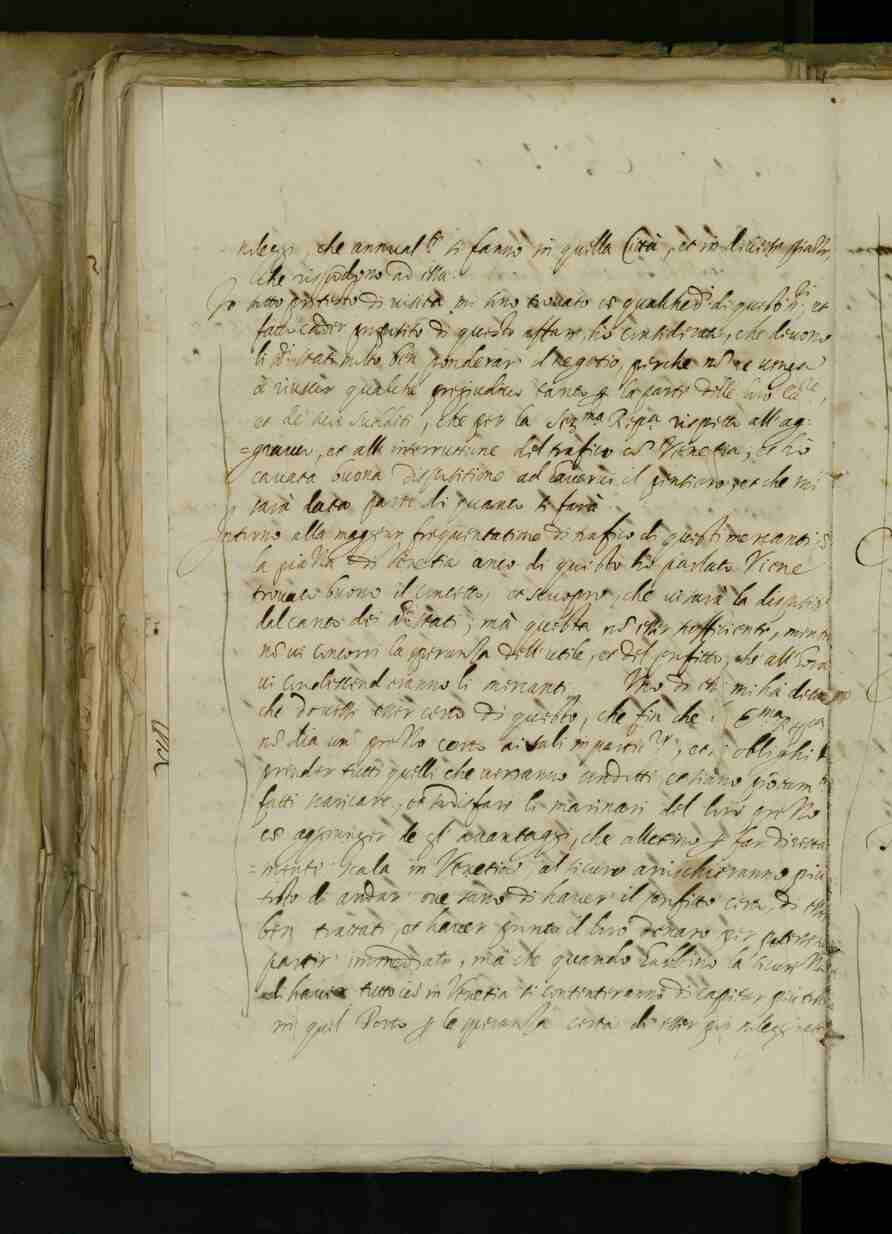 noleggi, che annual.te si fanno in quella Città, et in diverse
che rispondono ad essa.
Io sotto pretesto di visita mi sono trovato con qualched'un di questi SS.ri, et
fatto cader proposito di questo affare, ho considerato, che devono
li stati molto ben ponderar il negotio, perche non ne venga
à riuscir qualche pregiudicio tanto per la parte delle loro
et de suoi sudditi, che per la Ser.ma Rep.ca rispetto all'ag:
=gravio, et alla interrutione del trafico con Venetia; et hò
cavata buona dispositione ad haverne il pensiero, et che mi
sarà data parte di quanto si farà.
Intorno alla maggior frequentatione di trafico di questi mercanti con
la piazza di Venetia anco di questo hò parlato. Viene
trovato buono il concetto, et scuopro, che vi sarà la dispositione
dal canto dei stati; mà questa non esser sufficiente, mentre
non vi concorri la speranza dell'utile, et del profitto, che all'hora
vi condescenderanno li mercanti. Uno di essi mi hà detto
che dovessi esser certo di questo, che fin che
non dia un prezzo certo ai sali, et si oblighi à
prender tutti quelli che veranno condotti, et siano
fatti scaricare, et sodisfare li marinari del loro prezzo
con aggiunger de gl' avantaggi, che allettino per far diretta:
=mente scala in Venetia al sicuro arischieranno più
tosto d'andar ove sano di haver il profitto certo, di esser
ben trattati, et haver pronto il loro denaro per potersene
partir immediate, mà che quando habbino la sicurezza
di haver tutto ciò in Venetia si contenteranno di capitar più tosto
in quel Porto per la speranza certa di esser poi noleggiati